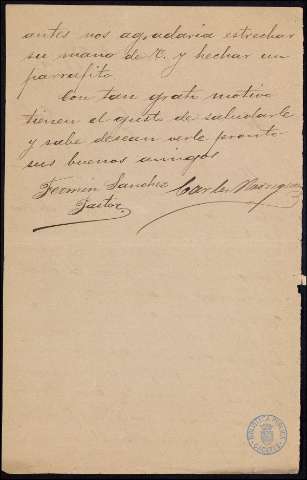 antes nos agradaria estrechar
su mano de V. y hechar un
parrafito.
Con tan grato motivo
tienen el gusto de saludarle
y sabe desean verle pronto
sus buenos amigos
Fermin Sanchez Carlos Rodriguez
Pastor
BIBLIOTECA PUBLICA
CACERES